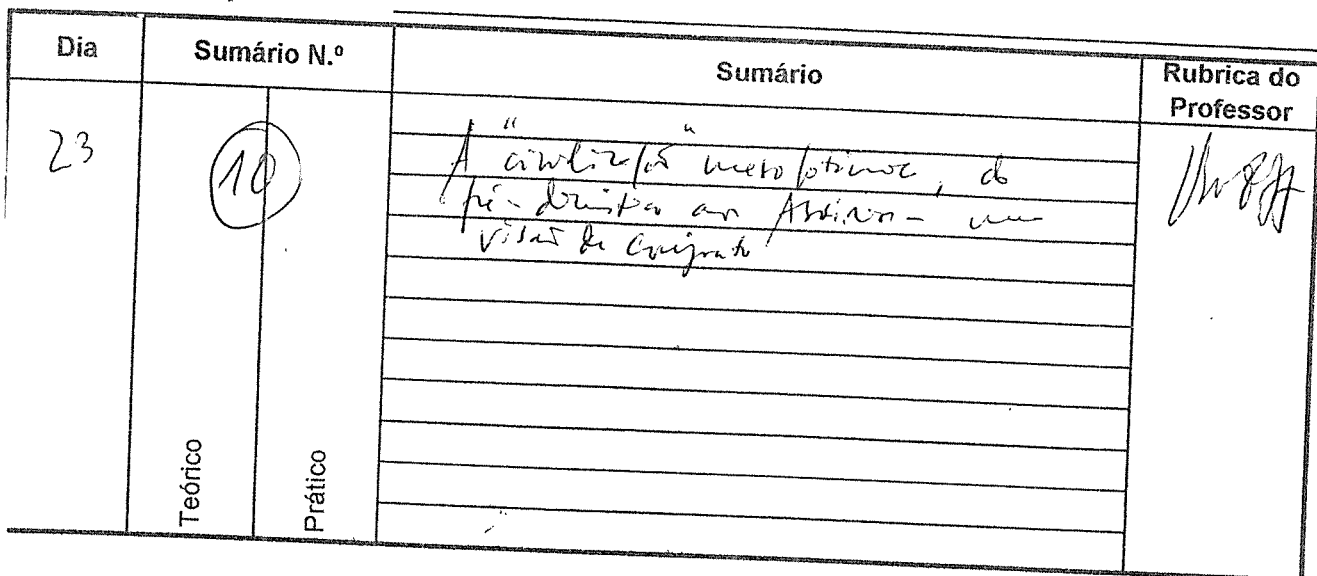 Dia Sumário N.º Sumário Rubrica do Professor
23 10
A "civilização" mesopotâmica, do
pré-dinástico aos Assírios - uma
visão de conjunto
Teórico Prático